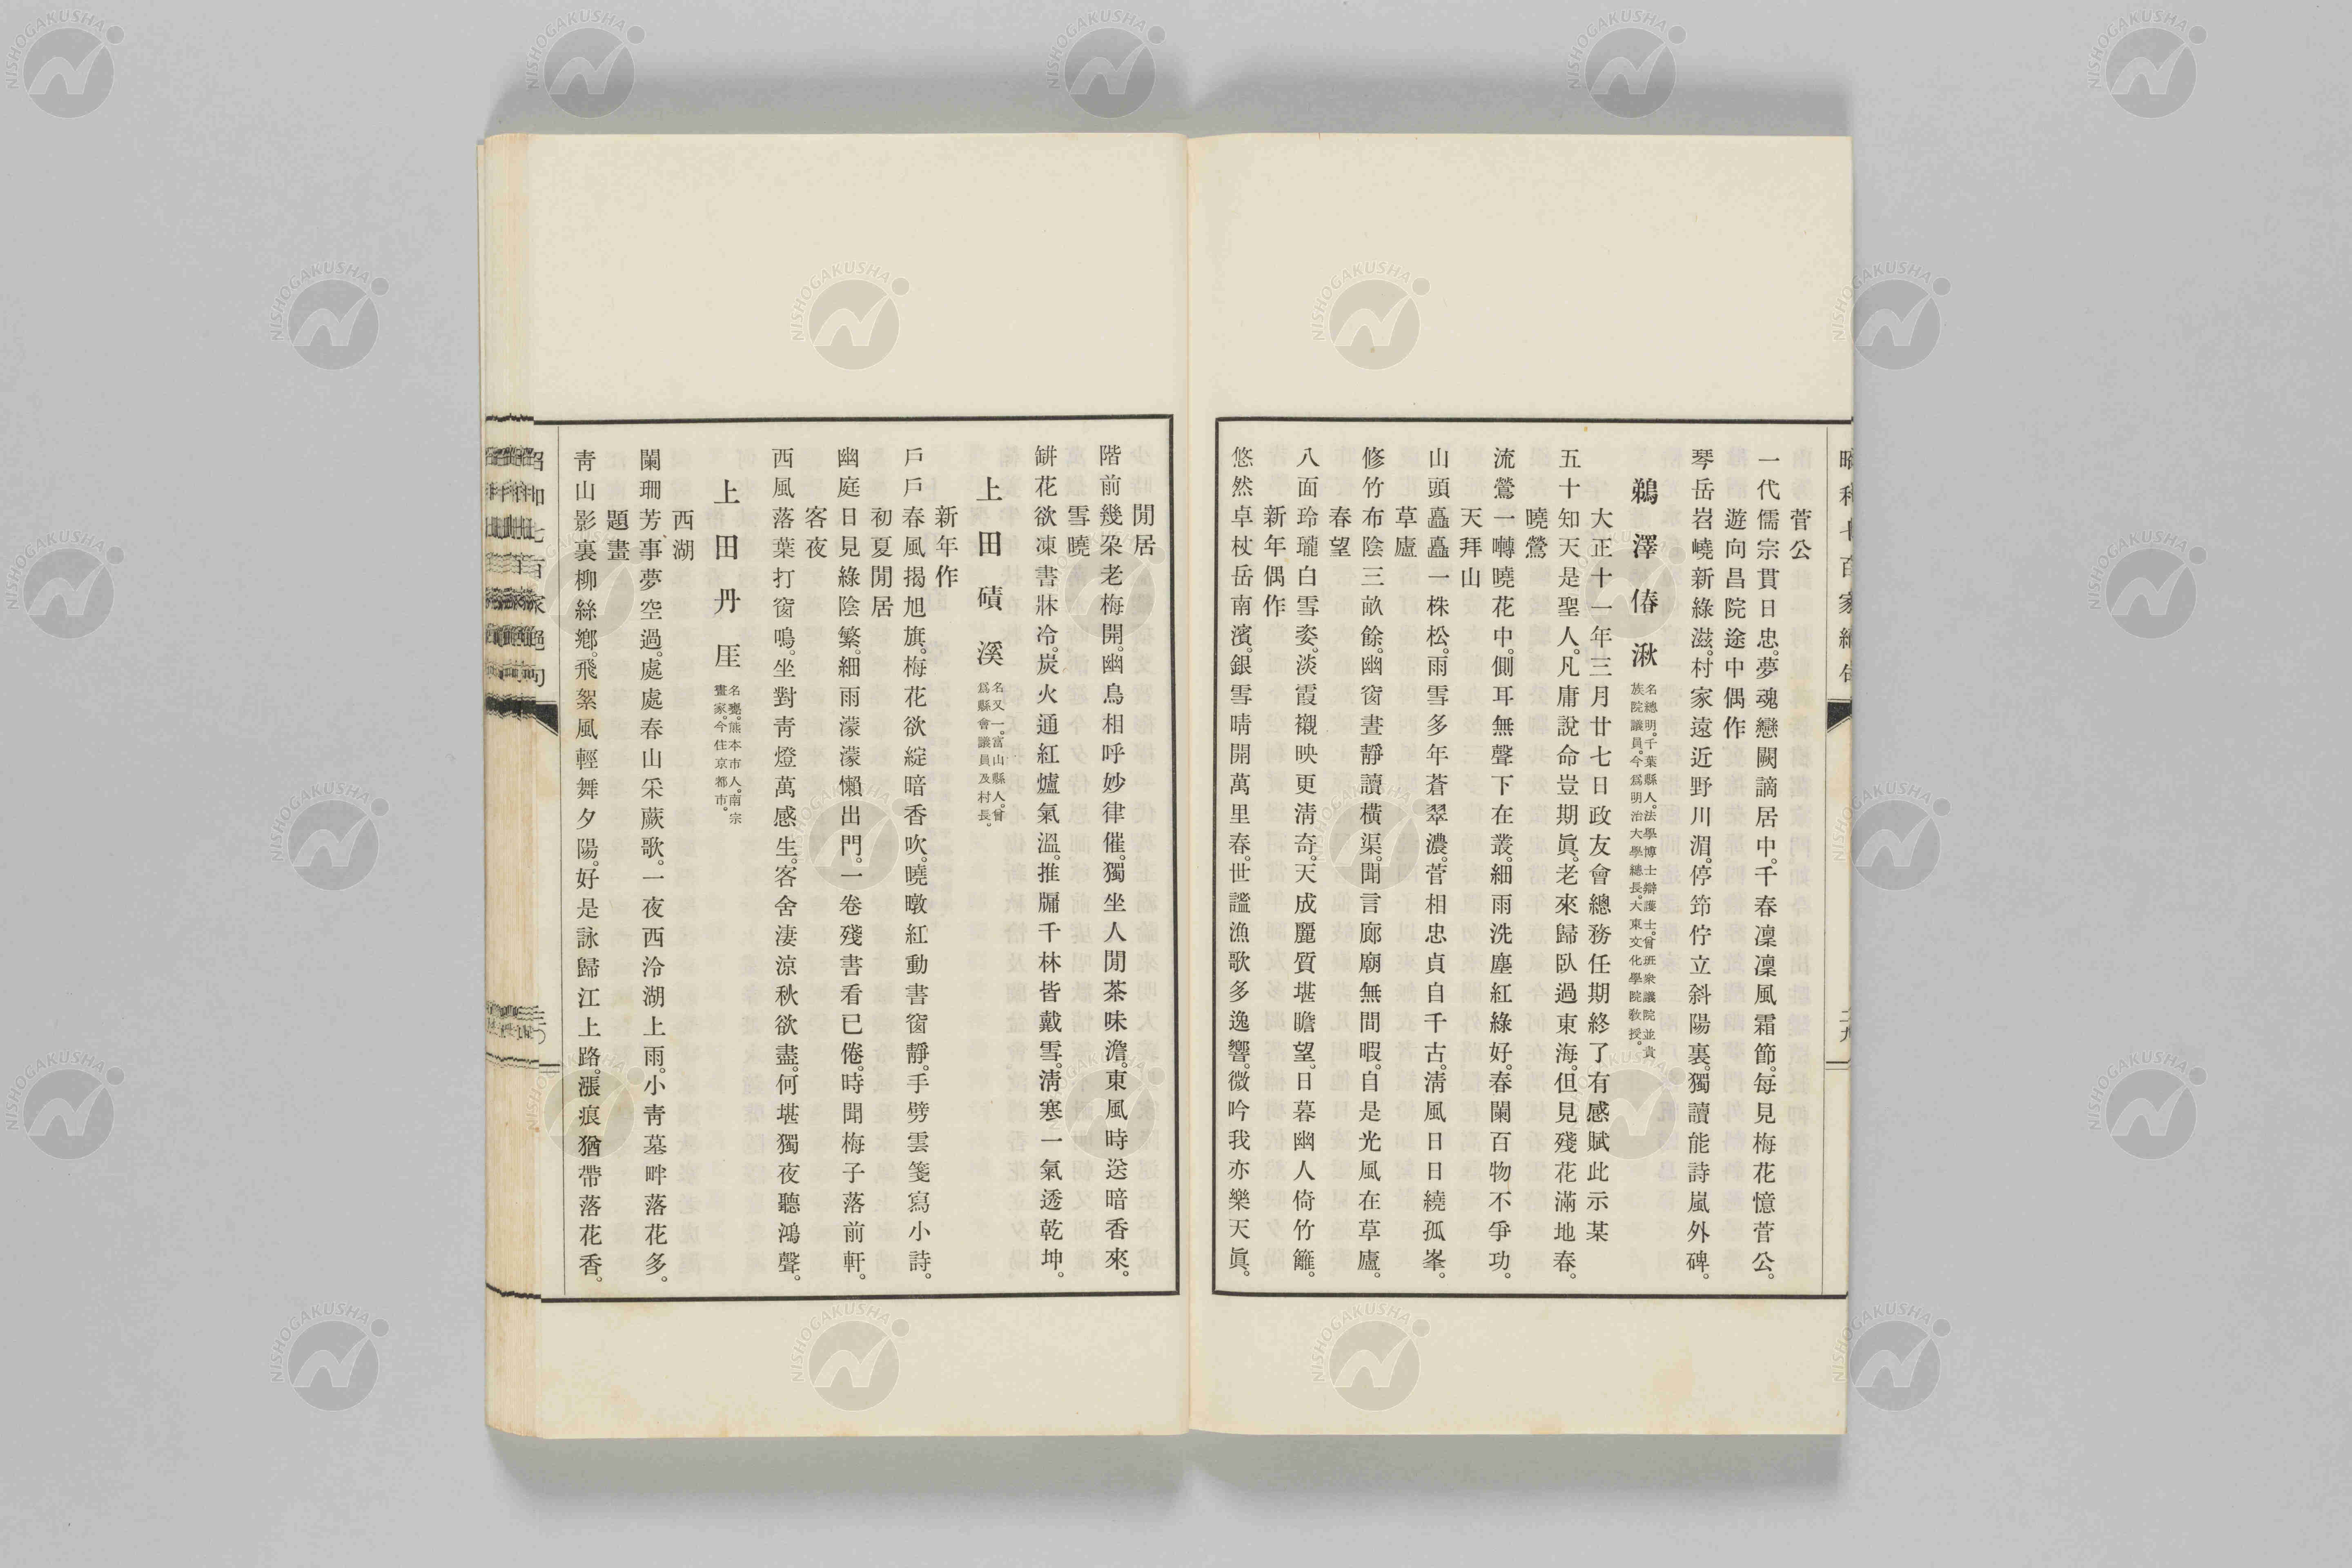 昭和七百家絕句
二九
菅公
一代儒宗貫日忠。夢魂戀闕謫居中。千春凜凜風霜節。每見梅花憶菅公。
遊向昌院途中偶作
琴岳岩嶢新綠滋。村家遠近野川湄。停筇佇立斜陽裏。獨讀能詩嵐外碑。
鵜澤偆湫
名總明。千葉縣人。法學博士辯護士。曾班衆議院並貴
族院議員。今爲明治大學總長。大東文化學院敎授。
大正十一年三月廿七日政友會總務任期終了有感賦此示某
五十知天是聖人。凡庸說命豈期眞。老來歸臥過東海。但見殘花滿地春。
曉鶯
流鶯一囀曉花中。側耳無聲下在叢。細雨洗塵紅綠好。春闌百物不爭功。
天拜山
山頭矗矗一株松。雨雪多年蒼翠濃。菅相忠貞自千古。淸風日日繞孤峯。
草廬
修竹布陰三畝餘。幽窗晝靜讀橫渠。聞言廊廟無間暇。自是光風在草廬。
春望
八面玲瓏白雪姿。淡霞襯映更淸奇。天成麗質堪瞻望。日暮幽人倚竹籬。
新年偶作
悠然卓杖岳南濱。銀雪晴開萬里春。世謐漁歌多逸響。微吟我亦樂天眞。
閒居
階前幾朶老梅開。幽鳥相呼妙律催。獨坐人閒茶味澹。東風時送暗香來。
雪曉
缾花欲凍書牀冷。炭火通紅爐氣溫。推牖千林皆戴雪。淸寒一氣透乾坤。
上田磧溪
名又一。富山縣人。曾
爲縣會議員及村長。
新年作
戶戶春風揭旭旗。梅花欲綻暗香吹。曉暾紅動書窗靜。手劈雲箋寫小詩。
初夏閒居
幽庭日見綠陰繁。細雨濛濛懶出門。一卷殘書看已倦。時聞梅子落前軒。
客夜
西風落葉打窗鳴。坐對靑燈萬感生。客舍凄涼秋欲盡。何堪獨夜聽鴻聲。
上田丹厓
名甕。熊本市人。南宗
畫家。今住京都市。
西湖
闌珊芳事夢空過。處處春山采蕨歌。一夜西泠湖上雨。小靑墓畔落花多。
題畫
靑山影裏柳絲鄕。飛絮風輕舞夕陽。好是詠歸江上路。漲痕猶帶落花香。
昭和七百家絕句
三〇